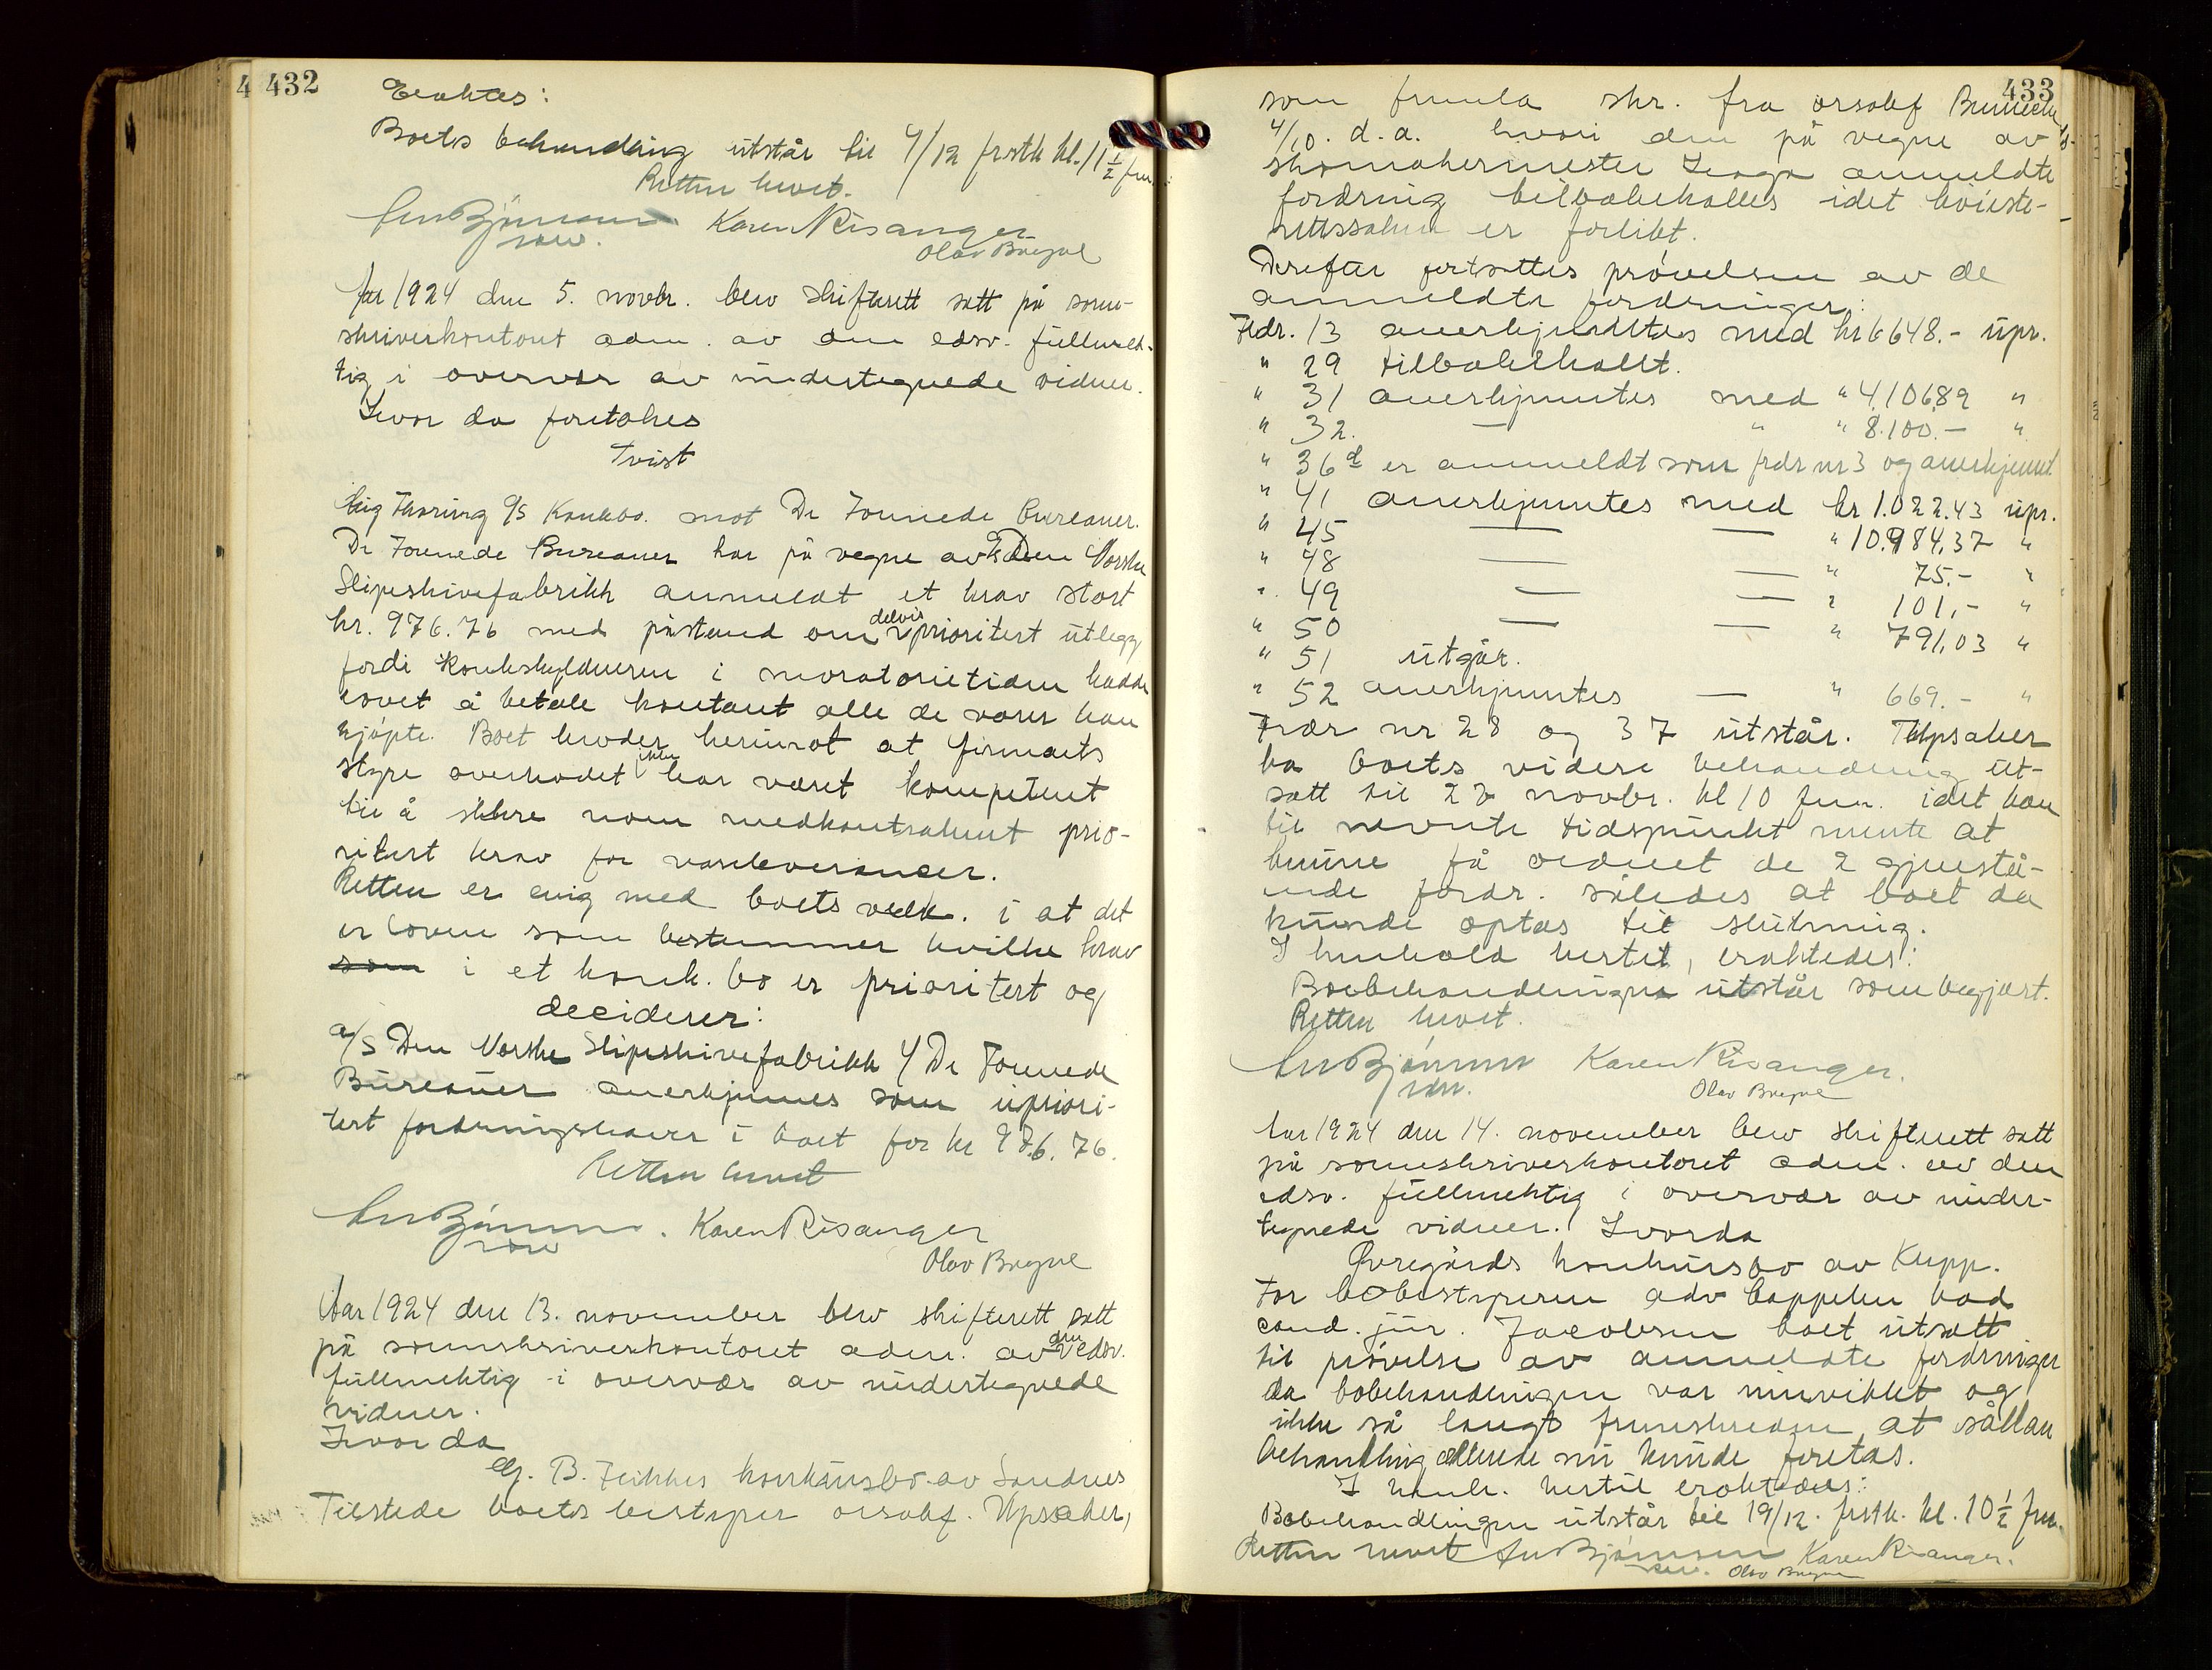 432
Eraktes:
Boets behandling utstår til 4/12 frstk kl. 11 1/2 fm.
Retten hevet.
Bjørnson Karen Risanger
Olav Bregne
Aar 1924 den 5. novbr. blev skifterett satt på soren-
skriverkontoret adm. av den edsv. fullmek-
tig i overvær av undertegnede vidner.
Hvor da foretokes
Tvist
Thoring A/S Konkbo. mot De Forenede Bureauer.
De Forenede Bureauer har på vegne av A/S Den Norske
Slipeskivefabrikk anmeldt et krav stort
kr. 976.76 med påstand om delvis prioritert utlegg
fordi konkskyldneren i moratorietiden hadde
lovet å betale kontant alle de varer han
kjøpte. Boet hevder herimot at firmaets
styre overhodet ikke har været kompetent
til å sikre noen medkontrahent prio-
ritert krav for vareleveranser.
Retten er enig med boets vedk. i at det
er loven som bestemmer hvilke krav
som i et konk. bo er prioritert og
deciderer:
A/S Den Norske Slipeskivefabrikk v/ De Forenede
Bureauer anerkjennes som upriori-
tert fordringshaver i boet for kr 976.76.
Retten hevet
Bjørnson. Karen Risanger
Olav Bregne
Aar 1924 den 13. november blev skifterett satt
på sorenskriverkontoret adm. av den edsv.
fullmektig i overvær av undertegnede
vidner.
Hvor da
B. konkursbo av Sandnes
Tilstede boets bestyrer orsakf. Upsaker,
433
som fremla skr. fra orsakf
4/10. d.a. hvori den på vegne av
skomakermester anmeldte
fordring tilbakekalles idet høieste-
rettssaken er forlikt.
Derefter fortsettes prøvelsen av de
anmeldte fordringer:
Fdr. 13 anerkjennttes med kr 6648.- upr.
" 29 tilbakekalt.
" 31 anerkjenntes med " 4,106,89 "
" 32. — " " 8.100.- "
" 36 d er anmeldt som frdr nr 3 og anerkjennt
" 41 anerkjenntes med kr 1.022.43 upr.
" 45 — — " 10.984,37 "
" 48 — — " 75.- "
" 49 — — " 101,- "
" 50 — — " 791,03 "
" 51 utgår.
" 52 anerkjenntes — " 669.- "
Frdr nr 28 og 37 utstår. Upsaker
ba boets videre behandling ut-
satt til 28 novbr. kl 10 fm. idet han
til nevnte tidspunkt mente at
kunne få ordnet de 2 gjenstå-
ende fordr. således at boet da
kunde optas til slutning.
I henhold hertil, eraktedes:
Bobehandlingen utstår som begjært.
Retten hevet.
Bjørnson Karen Risanger.
Olav Bregne
Aar 1924 den 14. november blev skifterett satt
på sorenskriverkontoret adm. av den
edsv. fullmektig i overvær av under-
tegnede vidner. Hvorda
Øvregårds konkursbo av Klepp.
For bobestyreren adv Cappelen bad
cand. jur. Jacobsen boet utsatt
til prøvelse av anmeldte fordringer
da bobehandlingen var innviklet og
ikke så langt fremskreden at sådan
behandling allerede nu kunde foretas.
I henh. hertil eraktedes:
Bobehandlingen utstår til 19/12. frstk. kl. 10 1/2 fm.
Retten hevet Bjørnson Karen Risanger.
Olav Bregne